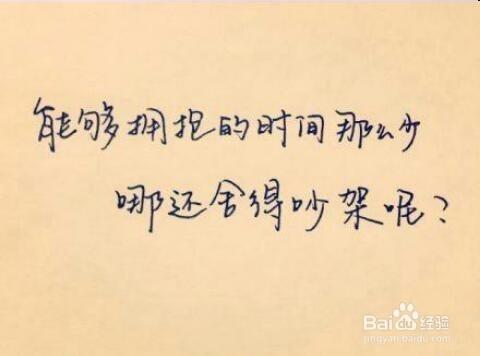 能够拥抱的时间那么少
哪还舍得吵架呢?
Baidu 经验
jingyan.baidu.com